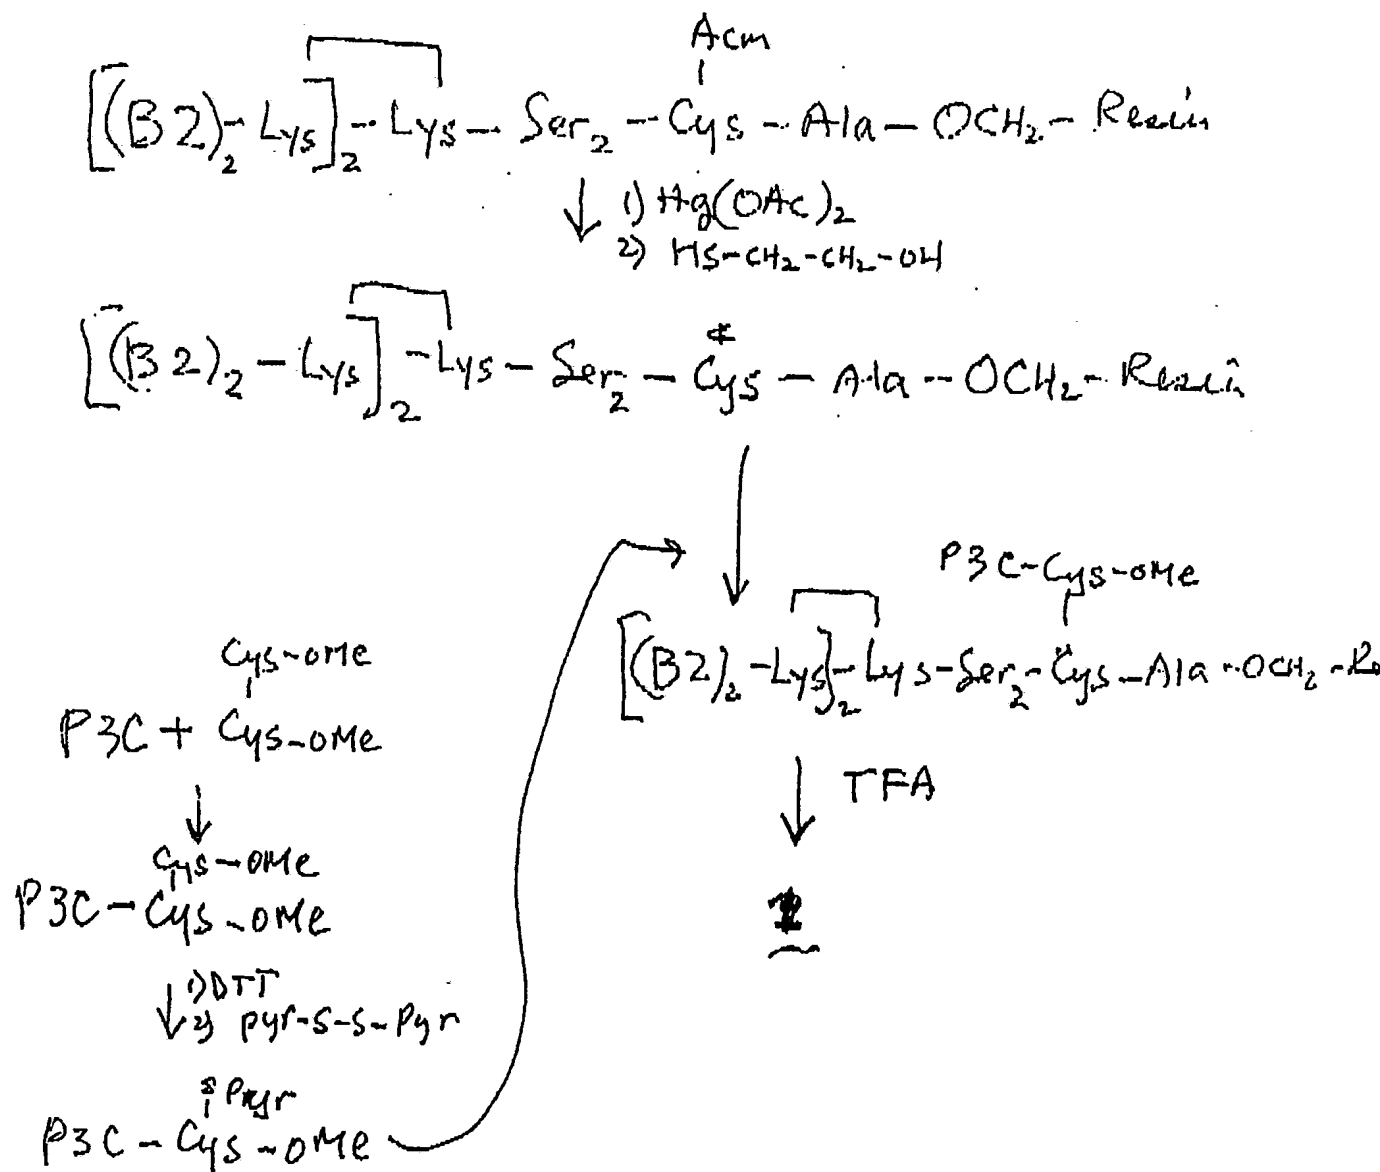 Acm
[(B2)2-Lys]2-Lys-Ser2-Cys-Ala-OCH2-Resin
1) Hg(OAc)2
2) HS-CH2-CH2-OH
[(B2)2-Lys]2-Lys-Ser2-Cys-Ala-OCH2-Resin
P3C-Cys-OMe
[(B2)2-Lys]2-Lys-Ser2-Cys-Ala-OCH2-Re
Cys-OMe
P3C + Cys-OMe
TFA
Cys-OMe
P3C-Cys-OMe
1) DTT
2) pyr-S-S-Pyr
P3C-Cys-OMe